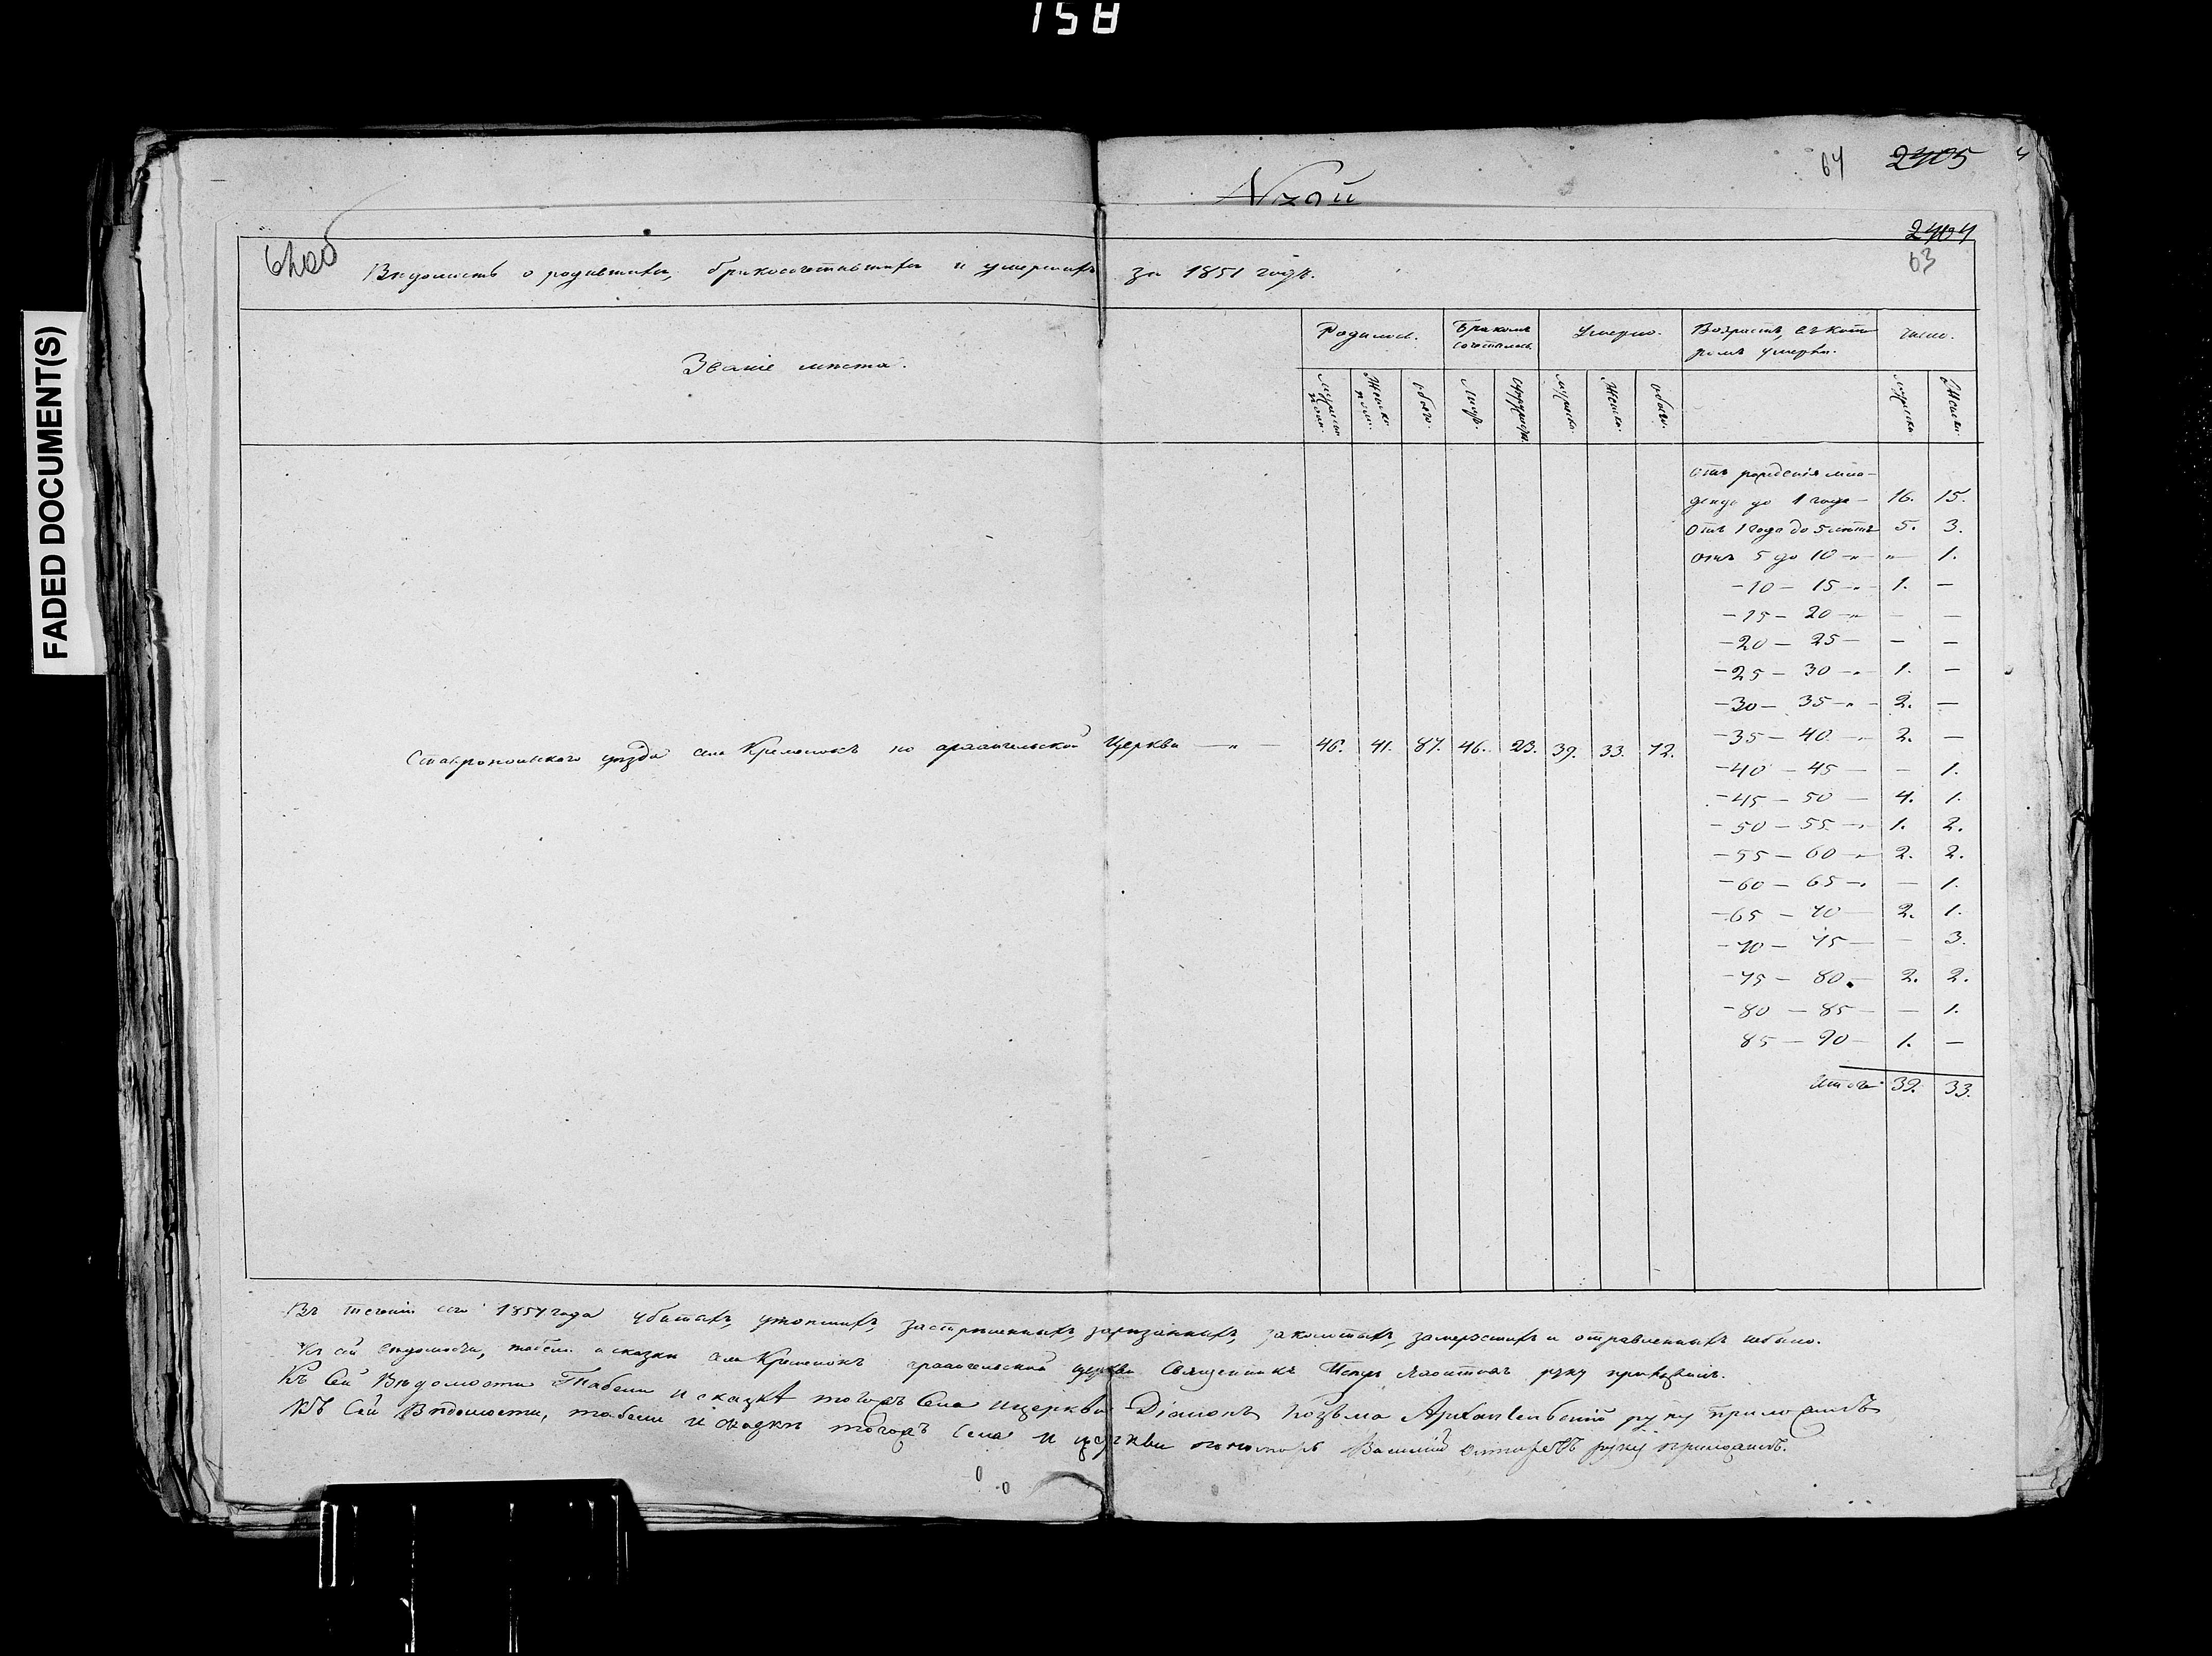 158
FADED DOCUMENT(S)
64 2405
2404
63
Вѣдомость о родившихся, бракосочетавшихся и умершихъ за 1851 годъ.
Званіе мѣста. Родилось. Бракомъ сочеталось. Умерло. Возрастъ, въ которомъ умерли. Число.
Мужеска пола. Женска пола. Обоего. Лицъ. Супружествъ. Мужска. Женска. Обоего. Мужска. Женска.
Отъ рожденія мла-
денцъ до 1 года — 16. 15.
Отъ 1 года до 5 лѣтъ 5. 3.
Отъ 5 до 10 — „ „ — 1.
— 10 — 15 — „ — 1. —
— 15 — 20 — „ — —
— 20 — 25 — — —
— 25 — 30 — „ — 1. —
— 30 — 35 — „ — 2. —
— 35 — 40 — 2. —
Ставропольскаго уѣзда села Кременокъ по архангельской Церкви — „ — 46. 41. 87. 46. 23. 39. 33. 72.
— 40 — 45 — — 1.
— 45 — 50 — 4. 1.
— 50 — 55 — 1. 2.
— 55 — 60 — 2. 2.
— 60 — 65 — — 1.
— 65 — 70 — 2. 1.
— 70 — 75 — — 3.
— 75 — 80 — 2. 2.
— 80 — 85 — — 1.
85 — 90 — 1. —
Итого 39. 33.
Въ теченіи сего 1851 года убитыхъ, утопшихъ, застрѣленныхъ, зарѣзанныхъ, заколотыхъ, замерзшихъ и отравленныхъ небыло.
Къ сей вѣдомости, табели и сказки села Кременокъ архангельской церкви Священникъ руку приложилъ.
Къ Сей Вѣдомости Табели и сказкѣ тогожъ Села и церкви Діаконъ Козьма Архангельскій руку приложилъ
Къ Сей Вѣдомости, табели и сказки тогожъ Села и церкви пономарь Василій руку приложилъ.